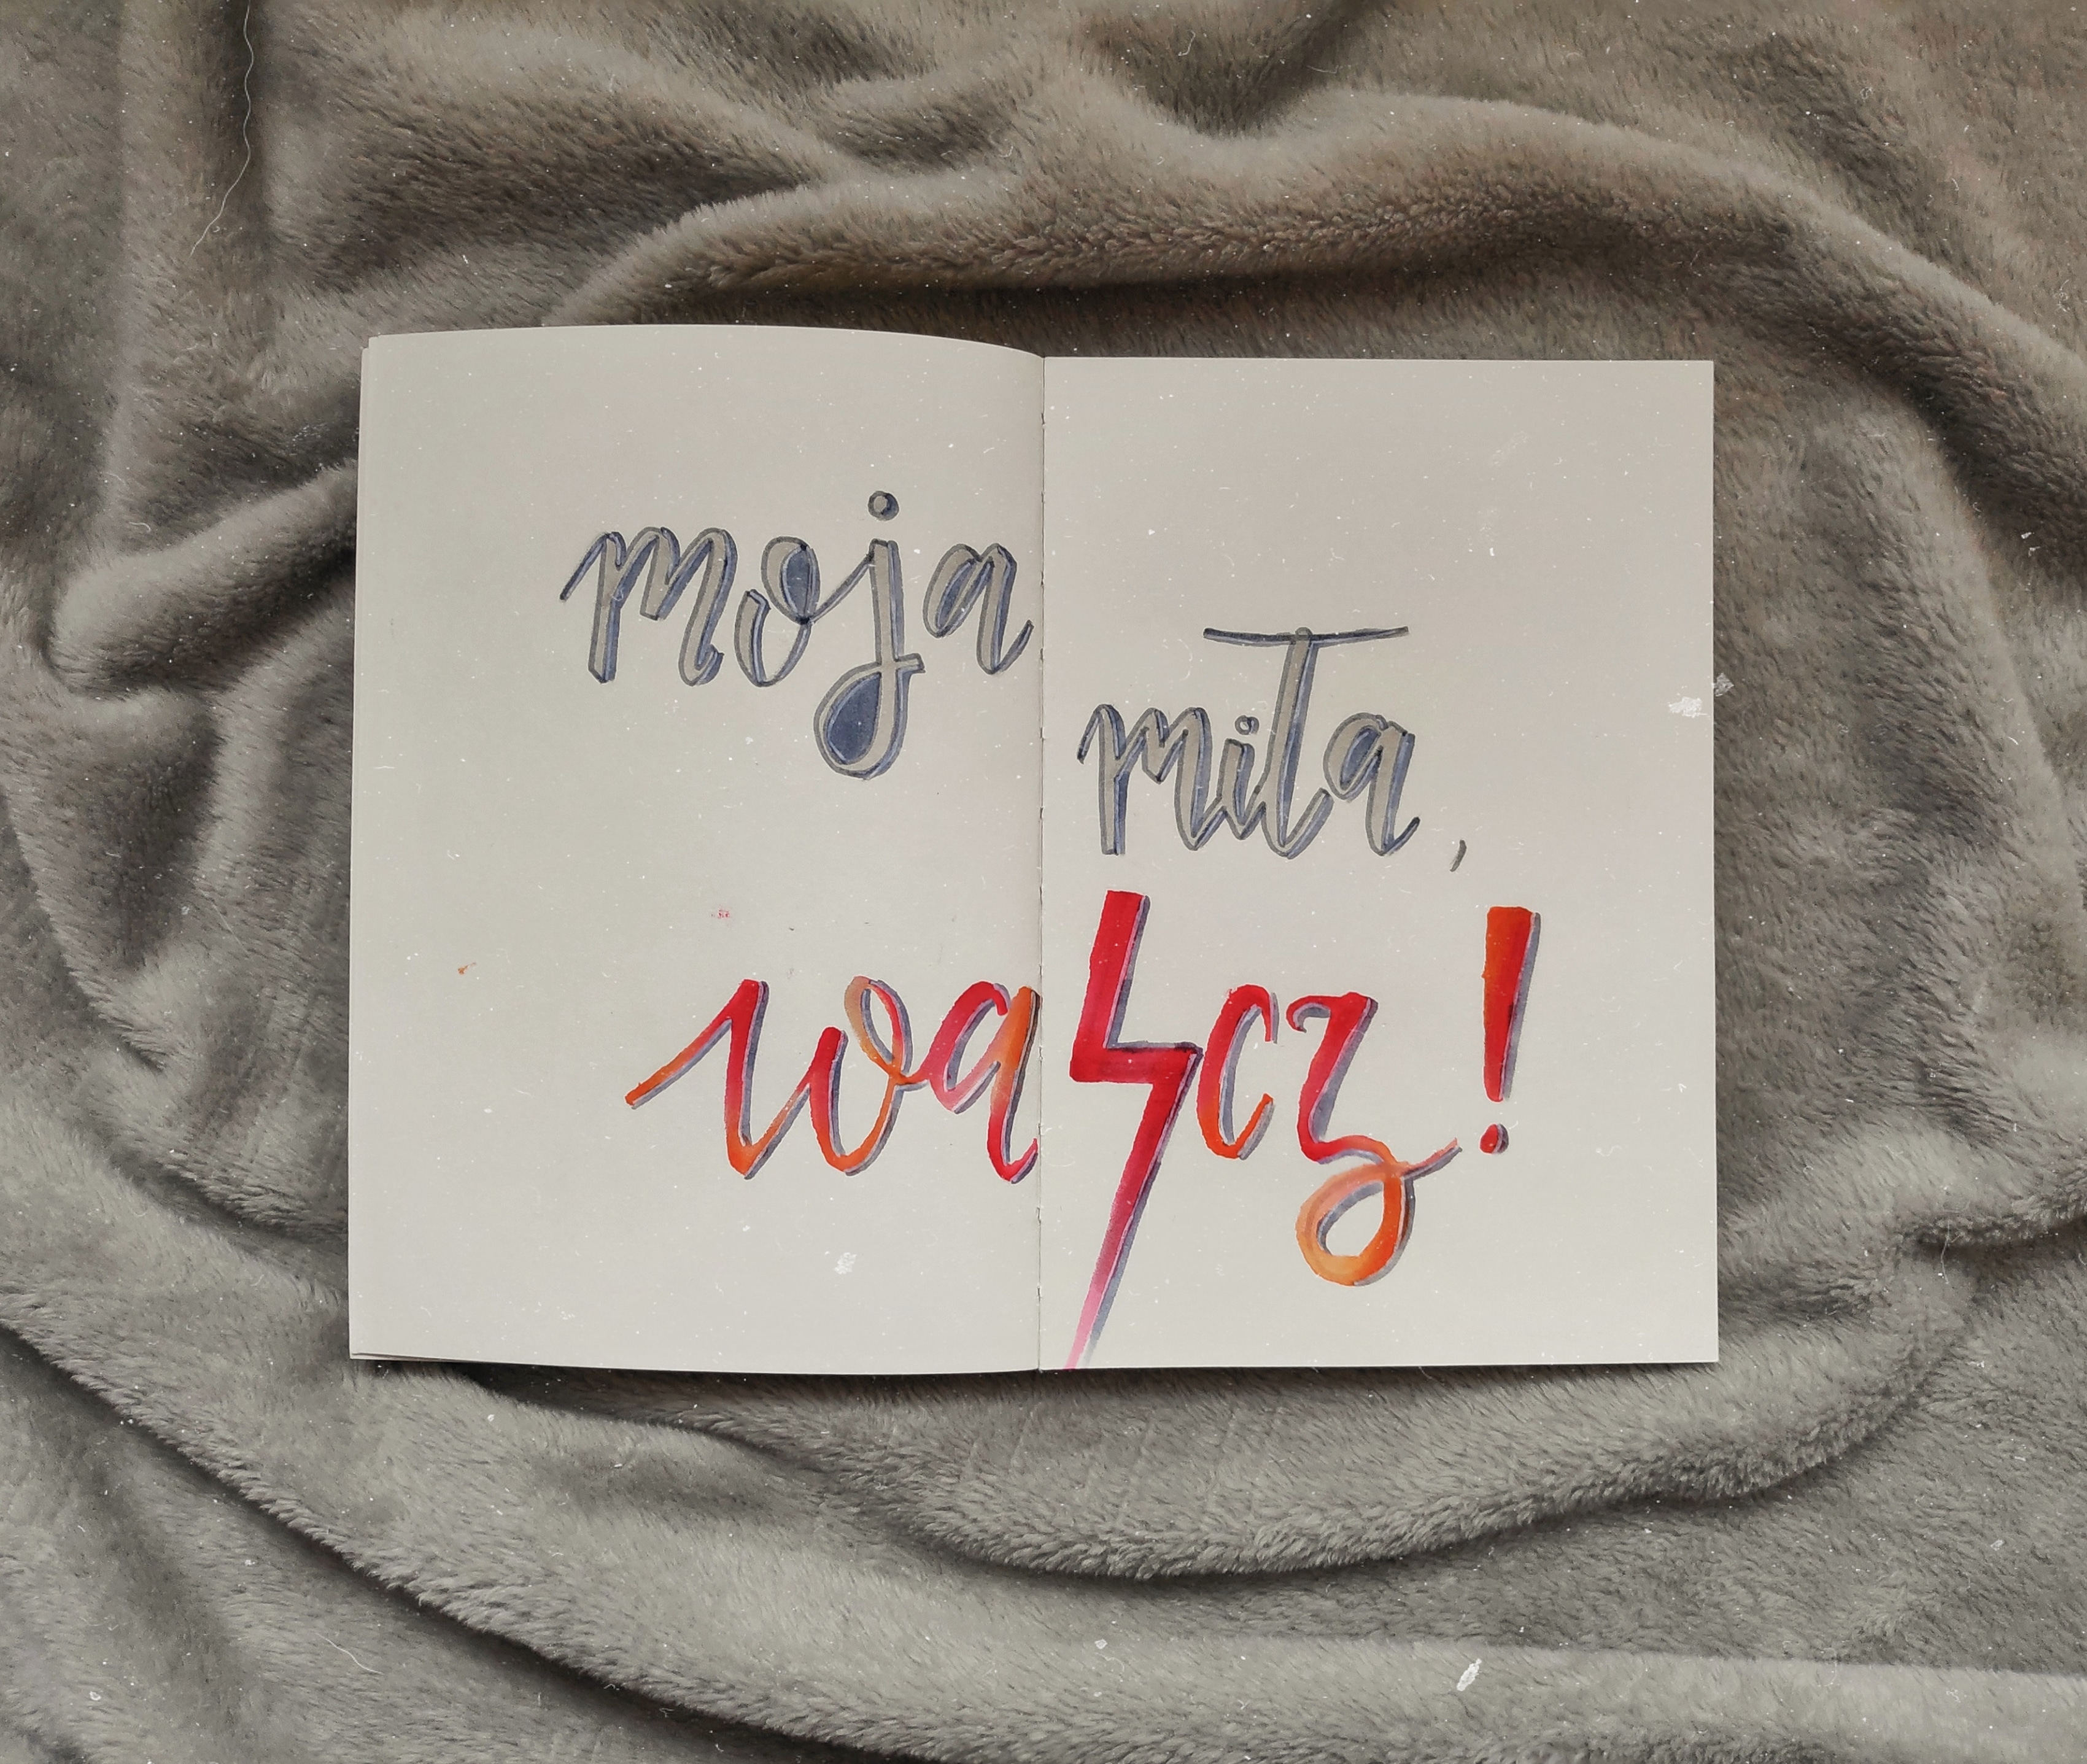 moja
miła,
walcz!